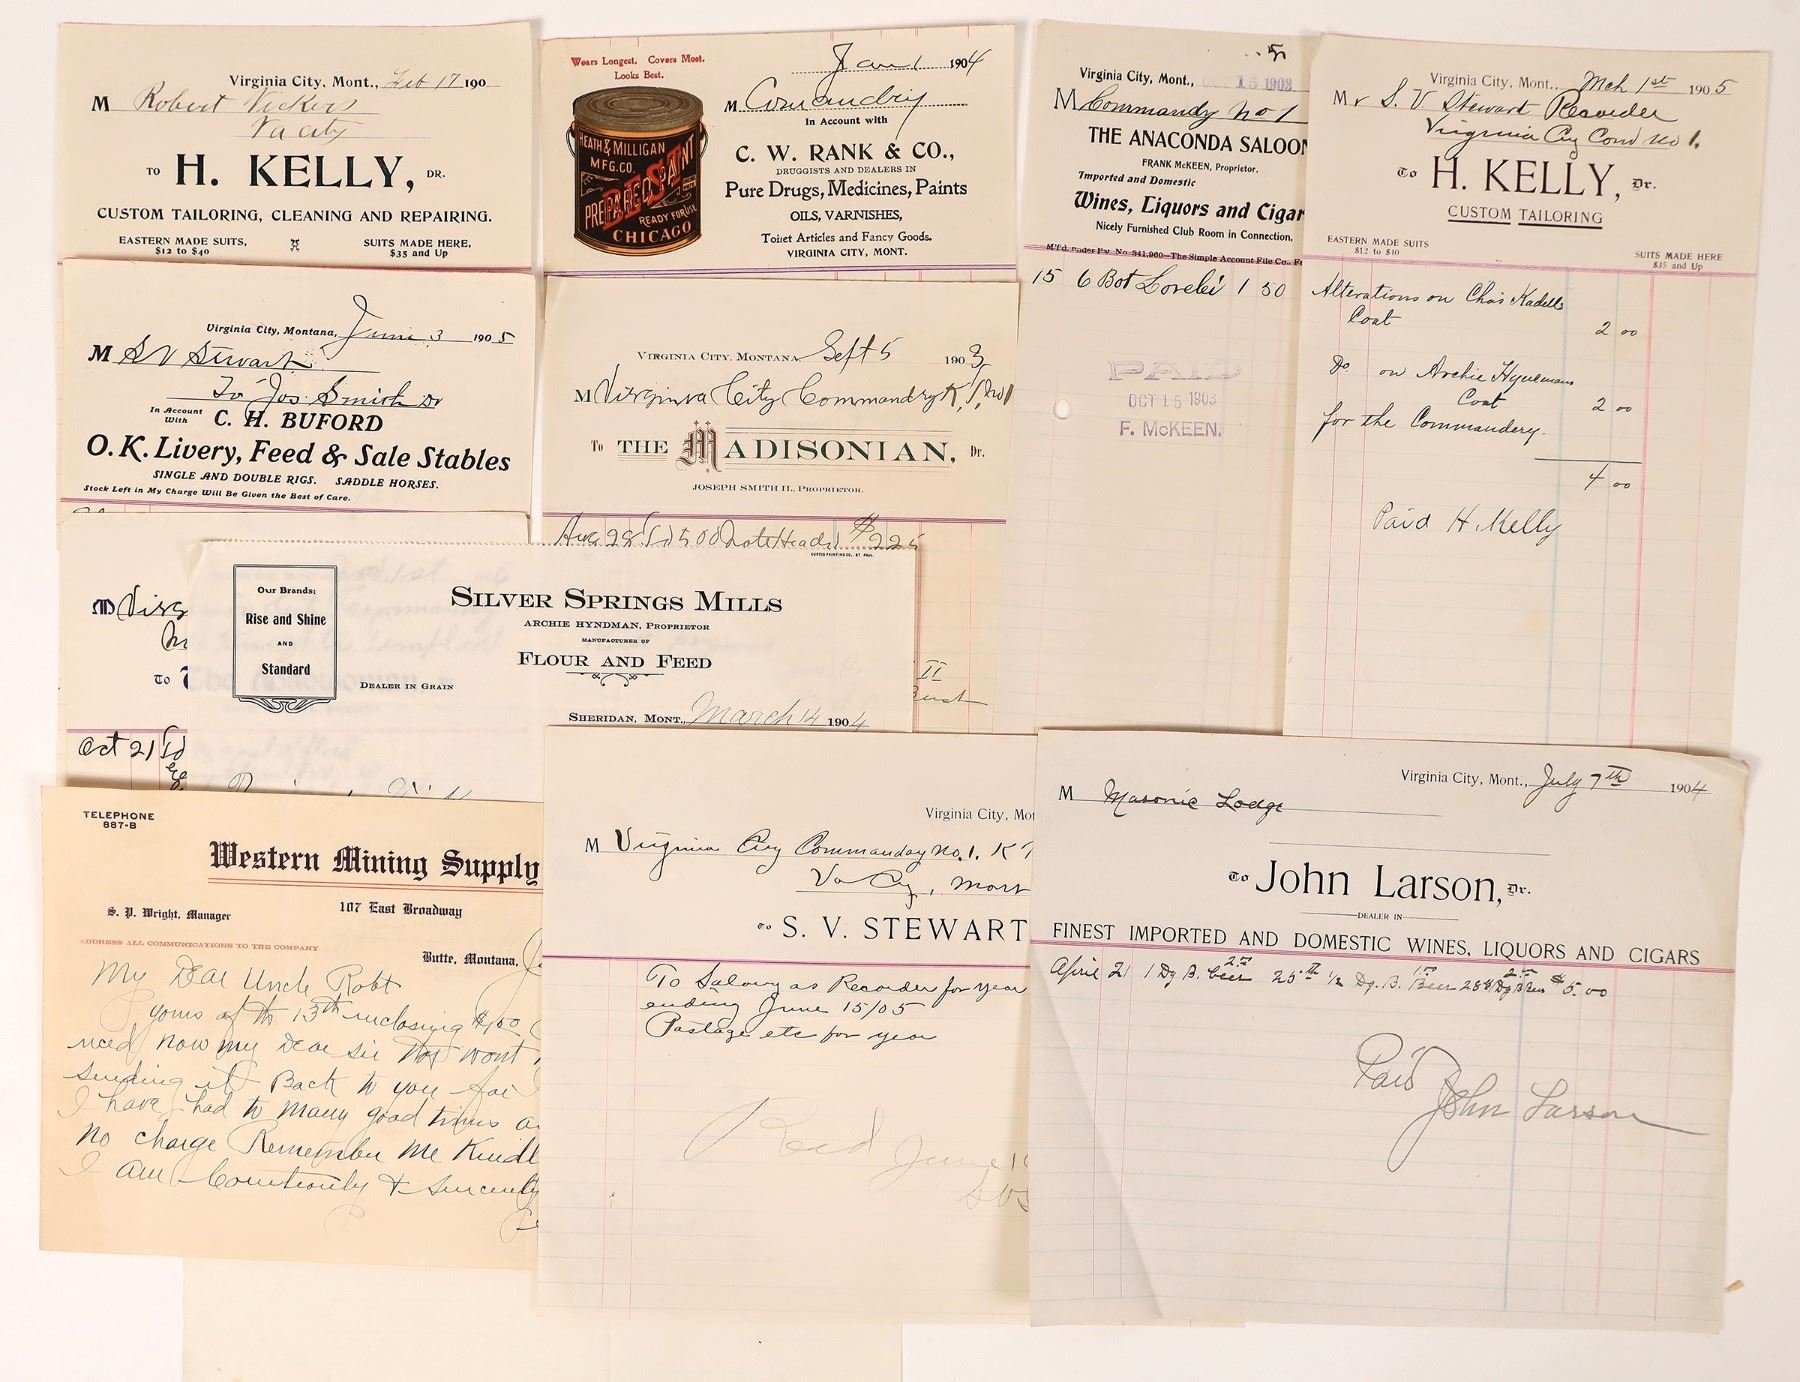 Virginia City, Mont., Feb 17 190
M Robert Vickers
Va City
TO H. KELLY, DR.
CUSTOM TAILORING, CLEANING AND REPAIRING.
EASTERN MADE SUITS,
$12 to $40
SUITS MADE HERE,
$35 and Up
Wears Longest. Covers Most.
Looks Best.
HEATH & MILLIGAN
MFG. CO.
BEST
PREPARED PAINT
READY FOR USE
CHICAGO
Jan 1 1904
M Comandry
In Account with
C. W. RANK & CO.,
DRUGGISTS AND DEALERS IN
Pure Drugs, Medicines, Paints
OILS, VARNISHES,
Toilet Articles and Fancy Goods.
VIRGINIA CITY, MONT.
Virginia City, Mont., OCT 15 1903
M Commandy No 1
THE ANACONDA SALOON
FRANK McKEEN, Proprietor.
Imported and Domestic
Wines, Liquors and Cigar
Nicely Furnished Club Room in Connection.
M'f'd. under Pat. No. 541,960—The Simple Account File Co., F
15 6 Bot Lorelei 1 50
PAID
OCT 15 1903
F. McKEEN.
Virginia City, Mont., Mch 1st 1905
Mr S. V Stewart Recorder
Virginia Cy Com No 1.
To H. KELLY, Dr.
CUSTOM TAILORING
EASTERN MADE SUITS
$12 to $40
SUITS MADE HERE
$35 and Up
Alterations on Chas Kadells
Coat 2 00
Do on Archie Hyndmans
Coat 2 00
for the Commandery.
4 00
Paid H. Kelly
Virginia City, Montana, June 3 1905
M S V Stewart
To Jos Smith Dr
In Account With C. H. BUFORD
O. K. Livery, Feed & Sale Stables
SINGLE AND DOUBLE RIGS. SADDLE HORSES.
Stock Left in My Charge Will Be Given the Best of Care.
VIRGINIA CITY, MONTANA Sept 5 1903
M Virginia City Commandry K. T. No 1
To THE MADISONIAN, Dr.
JOSEPH SMITH II., PROPRIETOR.
Aug 28 To 500 Note Heads $2 25
II
M Virg
To T
Oct 21 To
Our Brands:
Rise and Shine
AND
Standard
SILVER SPRINGS MILLS
ARCHIE HYNDMAN, PROPRIETOR
MANUFACTURER OF
FLOUR AND FEED
DEALER IN GRAIN
SHERIDAN, MONT., March 14 1904
TELEPHONE
887-B
Western Mining Supply
S. P. Wright, Manager
107 East Broadway
ADDRESS ALL COMMUNICATIONS TO THE COMPANY
Butte, Montana,
My Dear Uncle Robt
yours of th 13th inclosing $100
need now my Dear Sir not wont
sending it Back to you for
I have had to many good times
No charge Remember me Kindl
I am Courteously & Sincerely
Virginia City, Mo
M Virginia City Commanday No. 1. K T
Va Cy, Mont
To S. V. STEWART
To Salary as Recorder for year
ending June 15/05
Postage etc for year
Recd June 1
SVS
Virginia City, Mont., July 7th 1904
M Masonic Lodge
To John Larson, Dr.
DEALER IN
FINEST IMPORTED AND DOMESTIC WINES, LIQUORS AND CIGARS
April 21 1 Dg B. Beer 2.00 25th 1/2 Dg. B. Beer 1.00 28 Dg B Beer 2.00 $5.00
Paid
John Larson